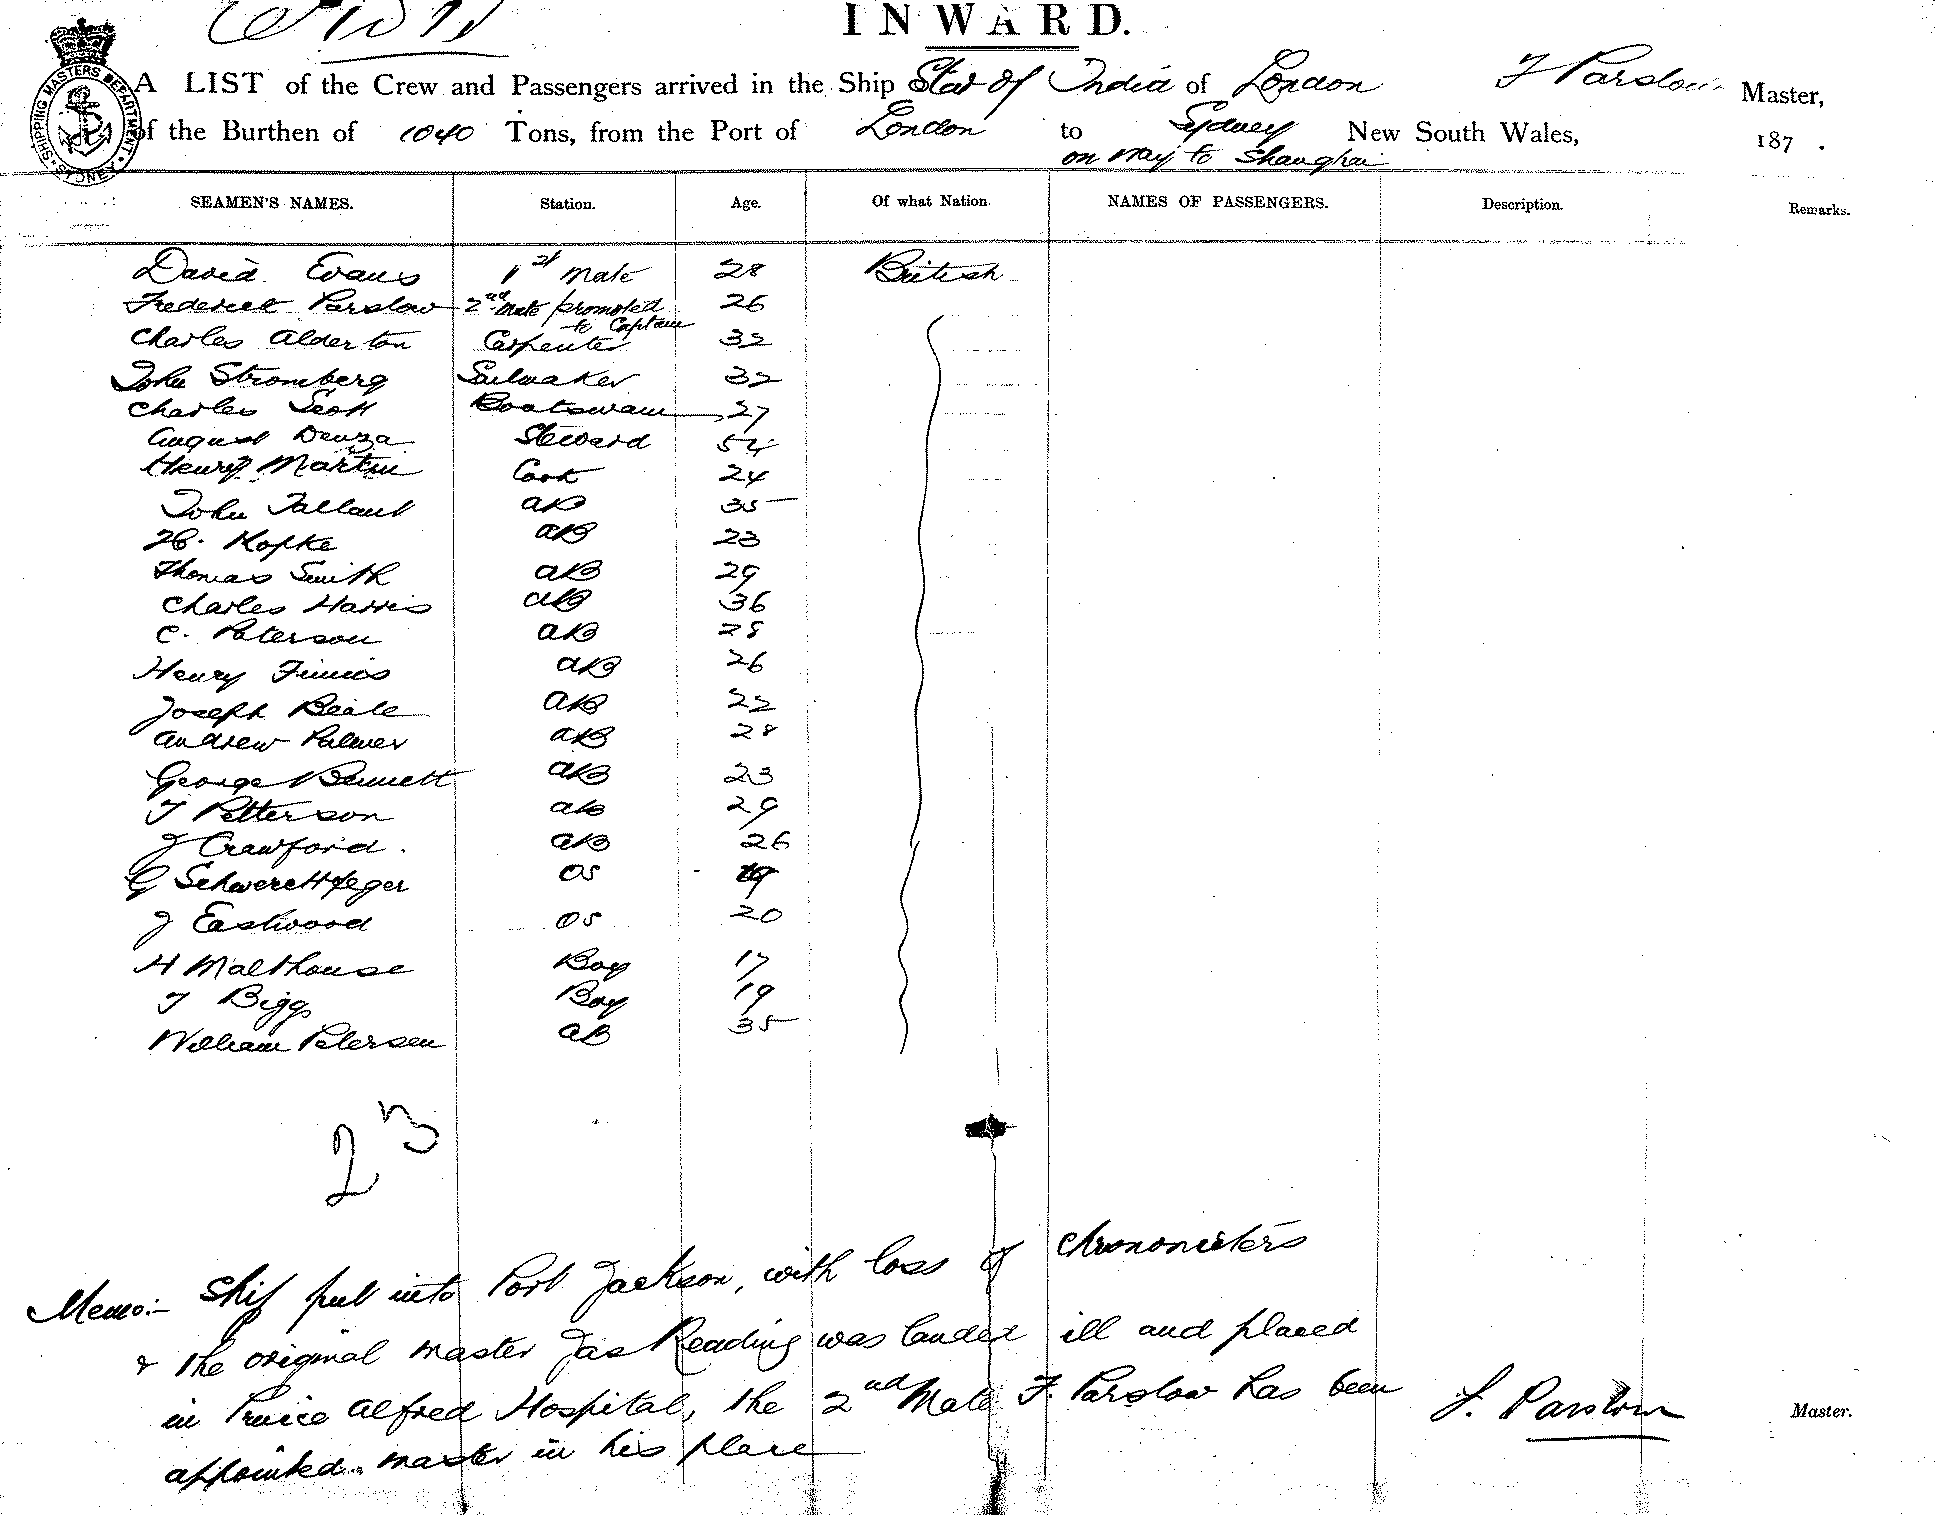 INWARD.
A LIST of the Crew and Passengers arrived in the Ship Star of India of London F Parslow Master,
of the Burthen of 1040 Tons, from the Port of London to Sydney New South Wales, 187 .
on way to Shanghai
SHIPPING MASTERS DEPARTMENT SYDNEY
SEAMEN'S NAMES. Station. Age. Of what Nation. NAMES OF PASSENGERS. Description. Remarks.
David Evans 1st Mate 28 British
Frederick Parslow 2nd Mate / promoted to Captain 26
Charles Alderton Carpenter 32
John Stromberg Sailmaker 32
Charles Scott Boatswain 27
August Denza Steward 54
Henry Martin Cook 24
John Tallant AB 35
H. Kopke AB 23
Thomas Smith AB 29
Charles Harris AB 36
C. Paterson AB 28
Henry AB 26
Joseph Beale AB 22
Andrew Palmer AB 28
George Bennett AB 23
T Petterson AB 29
J Crawford. AB 26
G Schwerettfeger OS 19
J Eastwood OS 20
H Malthouse Boy 17
T Biggs Boy 19
William Petersen AB 35
23
Memo:- Ship put into Port Jackson, with loss of chronometers
& the original master Jas Reading was landed ill and placed
in Prince Alfred Hospital, the 2nd Mate F. Parslow has been
appointed master in his place
F. Parslow Master.